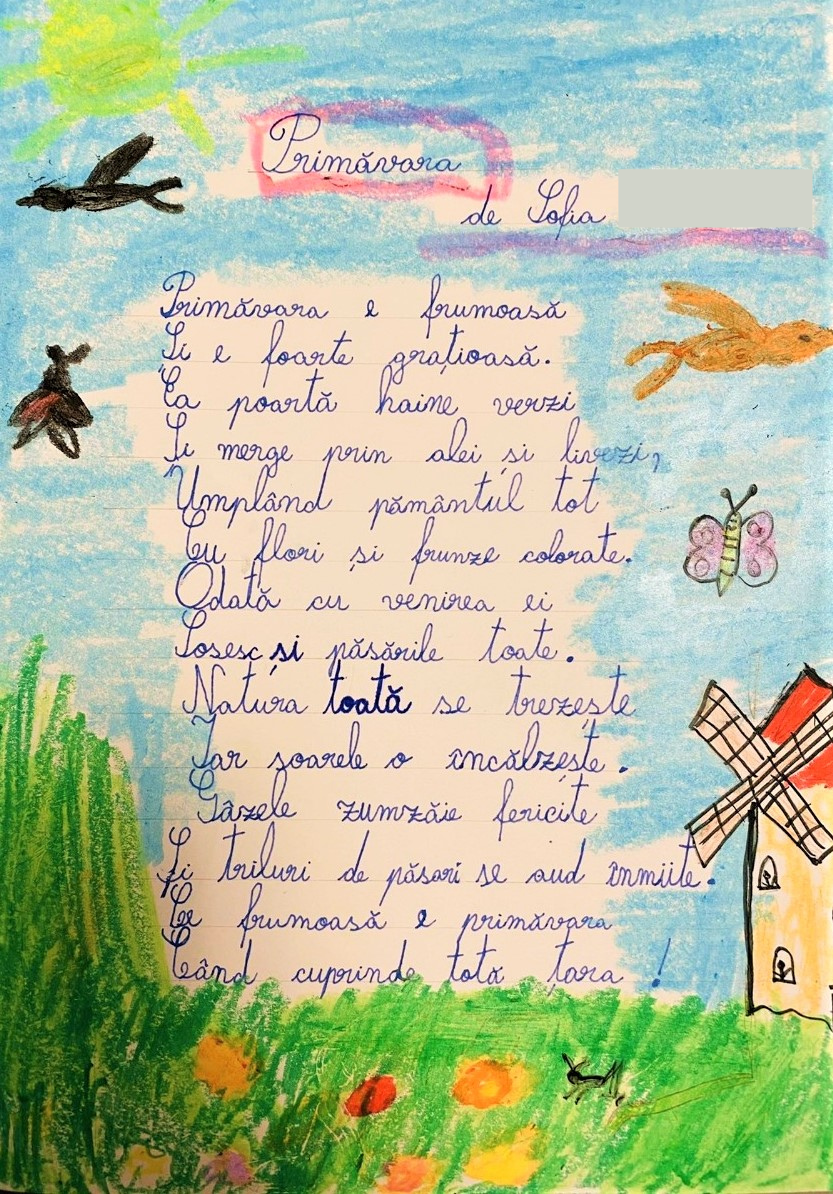 Primăvara
de Sofia
Primăvara e frumoasă
Și e foarte grațioasă.
Ea poartă haine verzi
Și merge prin alei și livezi,
Umplând pământul tot
Cu flori și frunze colorate.
Odată cu venirea ei
Sosesc și păsările toate.
Natura toată se trezește
Iar soarele o încălzește.
Gâzele zumzăie fericite
Și triluri de păsari se aud înmiite.
Ce frumoasă e primăvara
Când cuprinde totă țara!